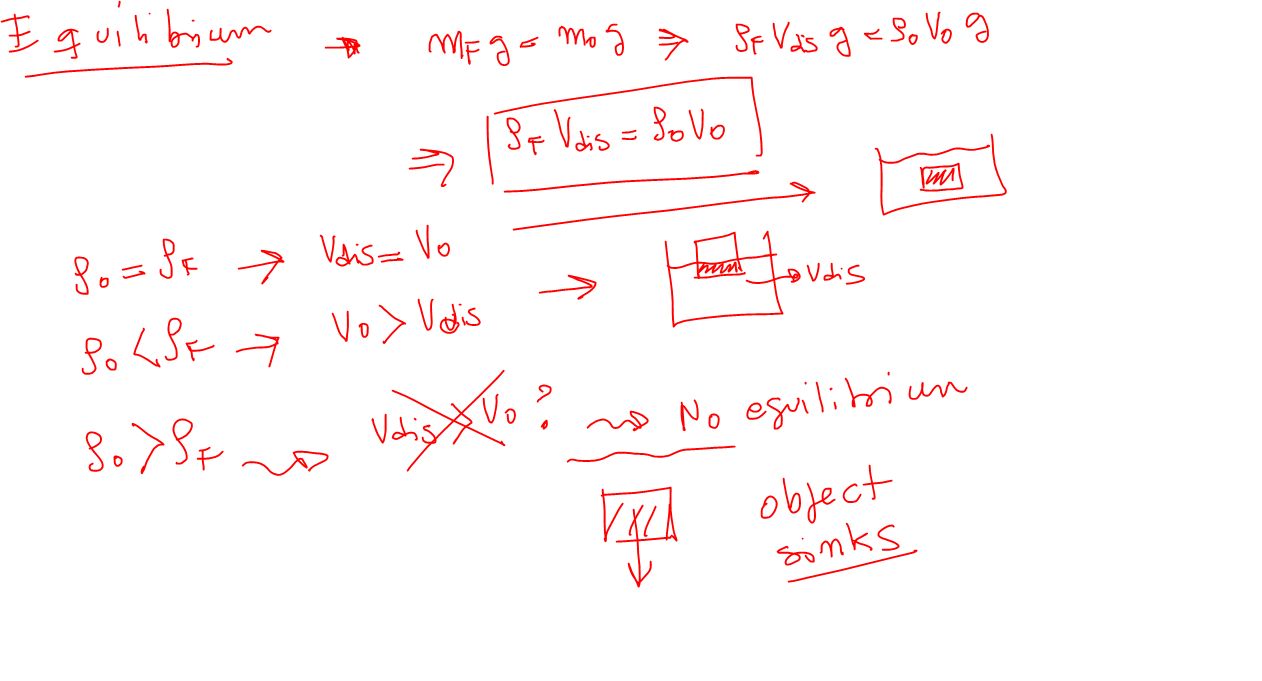 Equilibrium → m_F g = m_o g ⇒ ρ_F V_dis g = ρ_o V_o g
⇒ ρ_F V_dis = ρ_o V_o
ρ_o = ρ_F → V_dis = V_o →
ρ_o < ρ_F → V_o > V_dis → → V_dis
ρ_o > ρ_F → V_dis > V_o ? → No equilibrium
object
sinks